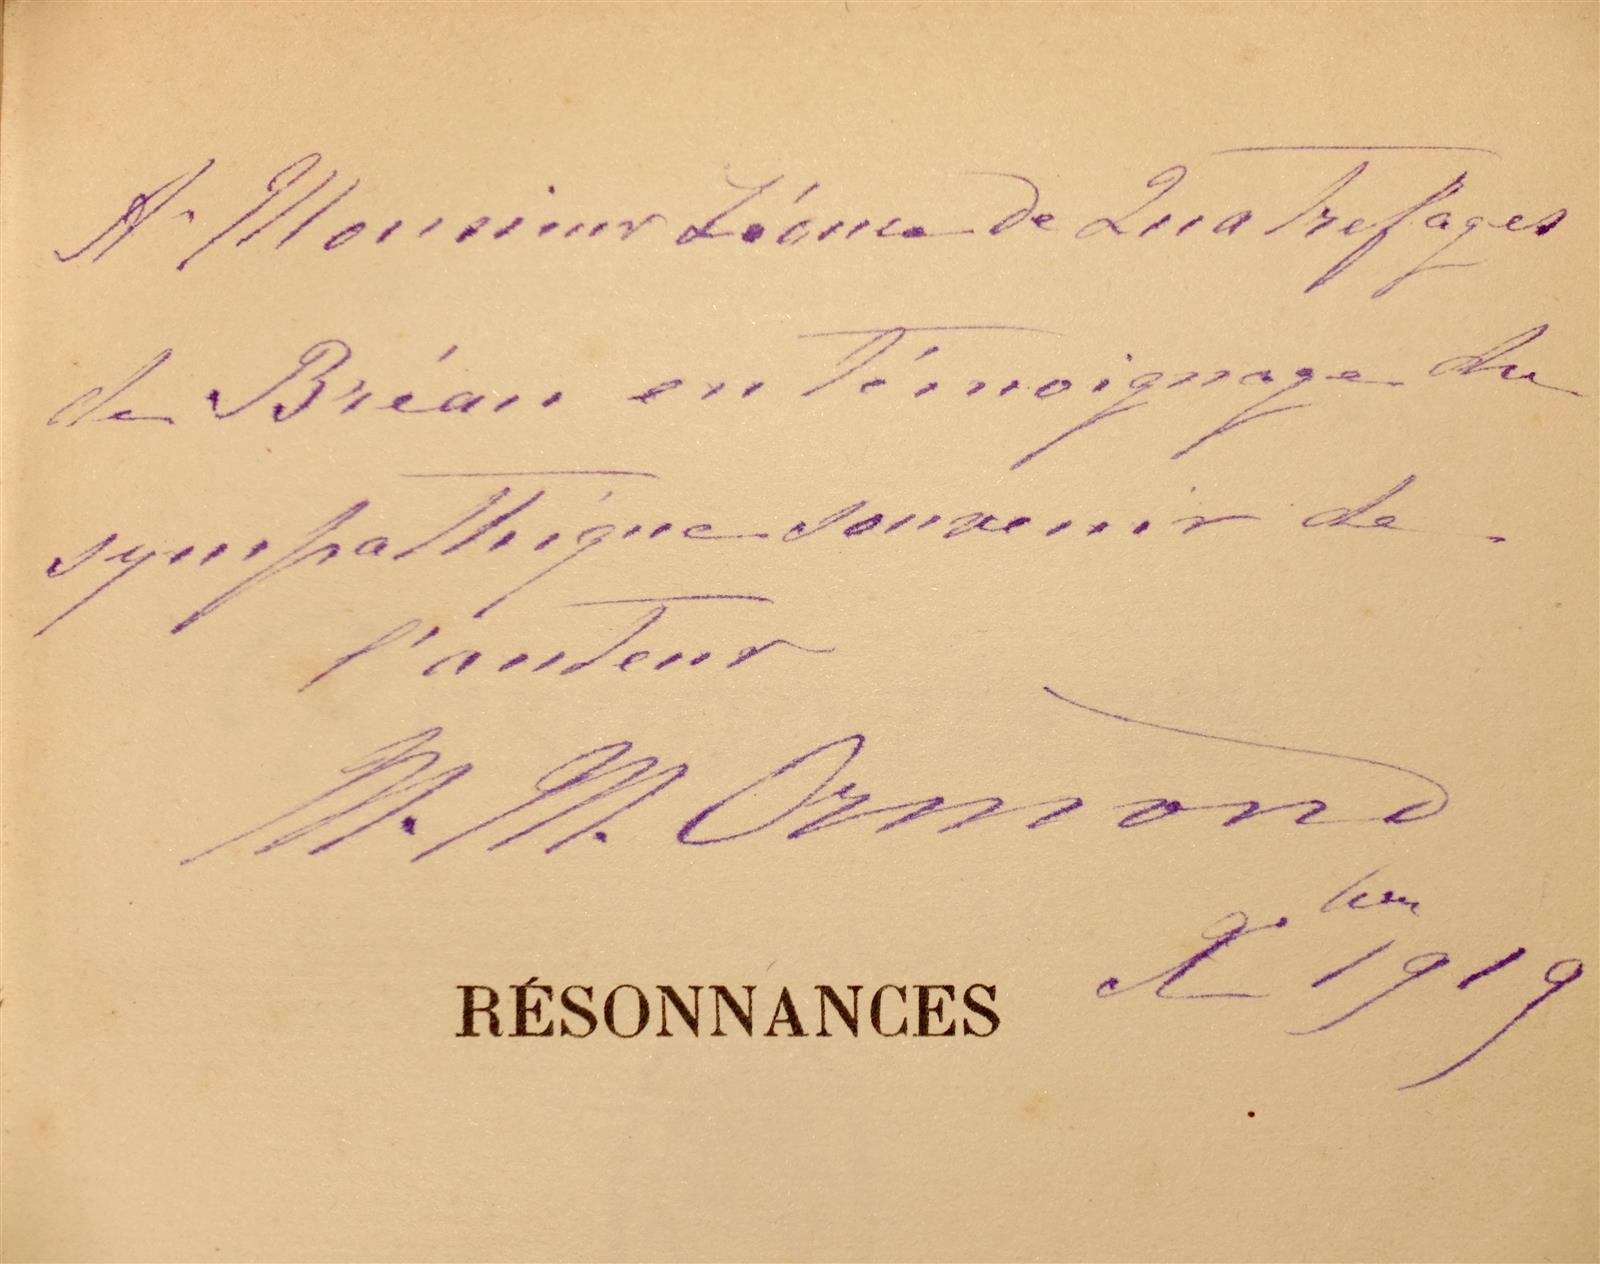 A Monsieur Léonce de Quatrefages
de Bréau en témoignage du
sympathique souvenir de
l'auteur
M. M. Ormond
Xbre 1919
RÉSONNANCES